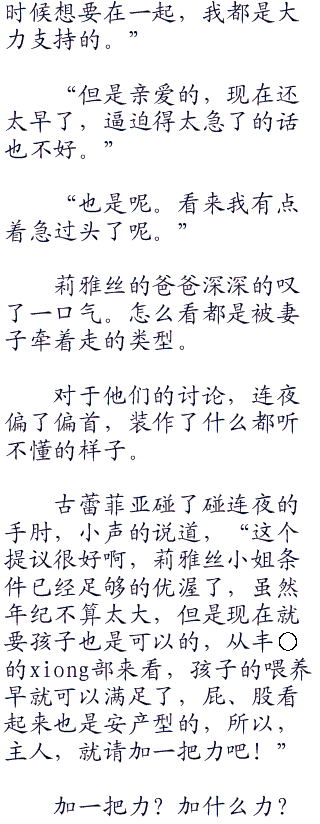 时候想要在一起，我都是大
力支持的。”
“但是亲爱的，现在还
太早了，逼迫得太急了的话
也不好。”
“也是呢。看来我有点
着急过头了呢。”
莉雅丝的爸爸深深的叹
了一口气。怎么看都是被妻
子牵着走的类型。
对于他们的讨论，连夜
偏了偏首，装作了什么都听
不懂的样子。
古蕾菲亚碰了碰连夜的
手肘，小声的说道，“这个
提议很好啊，莉雅丝小姐条
件已经足够的优渥了，虽然
年纪不算太大，但是现在就
要孩子也是可以的，从丰〇
的xiong部来看，孩子的喂养
早就可以满足了，屁、股看
起来也是安产型的，所以，
主人，就请加一把力吧！”
加一把力？加什么力？